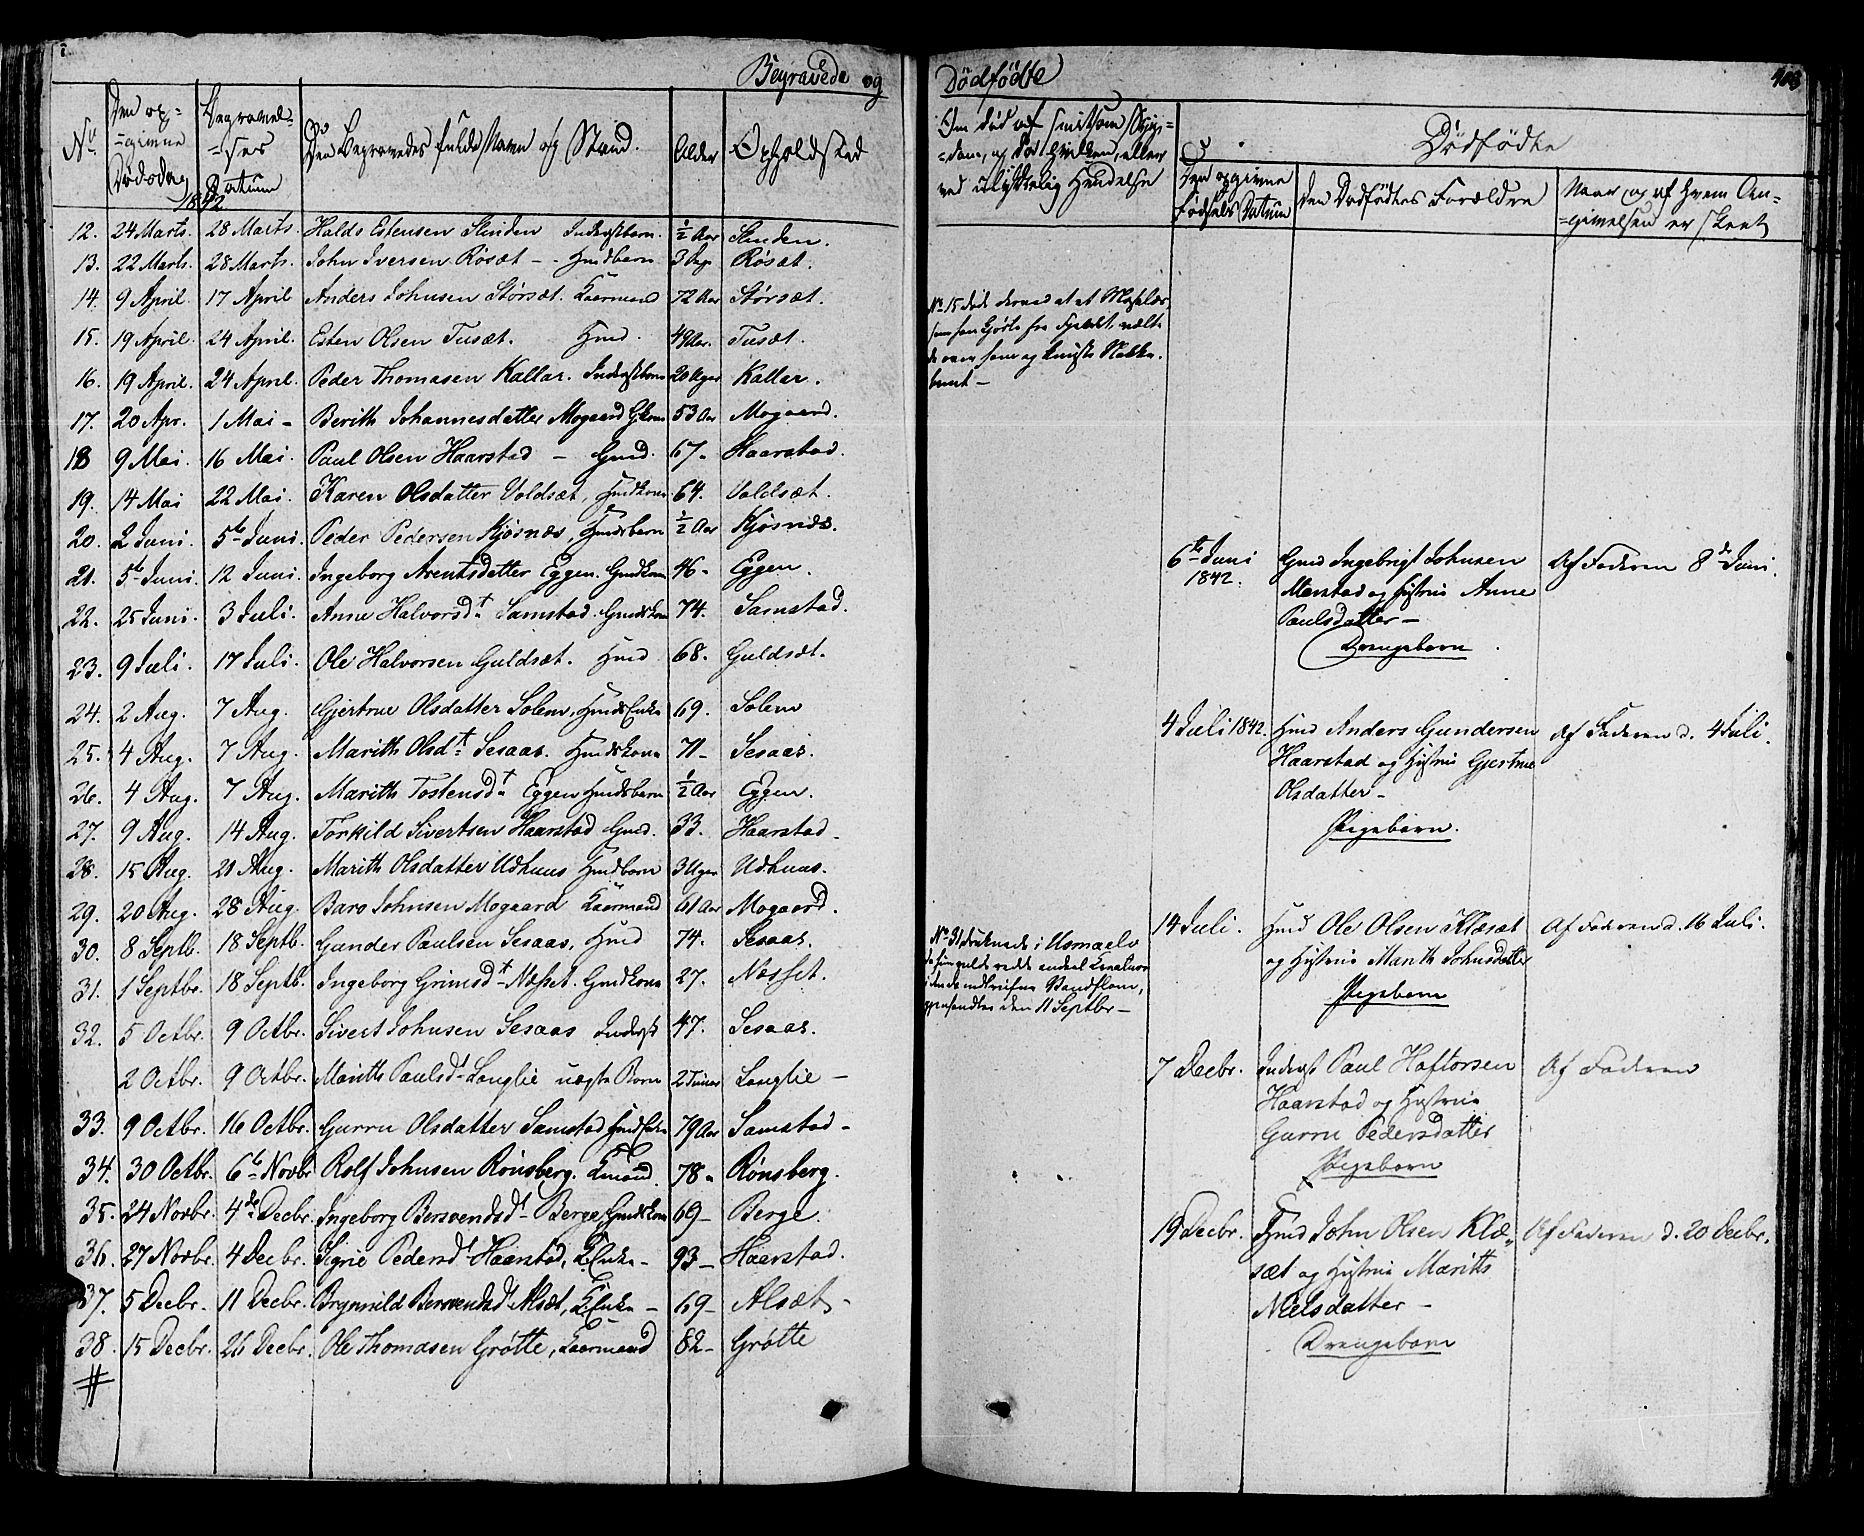 Begravede og
No.
Den op=
=givne
Dødsdag
Begravel=
=ses
Datum
Den Begravedes fulde Navn og Stand.
Alder
Opholdsted
1842
12. 24 Marts. 28 Marts. Halds Estensen Slinden Inderstbarn. ½ Aar Slinden.
13. 22 Marts. 28 Marts. John Iversen Røsæt - - Hmdbarn 3 Dage Røsæt.
14. 9 April 17 April Anders Johnsen Storsæt. Kaarmand 72 Aar Storsæt.
15. 19 April. 24 April. Esten Olsen Tusæt. Hmd. 49 Aar. Tusæt.
16. 19 April. 24 April. Peder Thomasen Kallar. Inderstbarn 20 Uger Kallar.
17. 20 Apr. 1 Mai - Berith Johannesdatter Mogaard Gkone 53 Aar Mogaard.
18 9 Mai. 16 Mai. Paul Olsen Haarstad - Gmd. 67. Haarstad.
19. 14 Mai 22 Mai. Karen Olsdatter Voldsæt, Hmdkone 64. Voldsæt.
20. 2 Juni. 5te Juni. Peder Pedersen Kjøsnæs, Hmdsbarn ½ Aar Kjøsnæs.
21. 5te Juni. 12 Juni. Ingeborg Arentsdatter Eggen. Gmdkone 46- Eggen.
22. 25 Juni. 3 Juli. Anne Halvorsdt Samstad. Gmdskone 74. Samstad.
23. 9 Juli. 17 Juli. Ole Halvorsen Guldsæt. Hmd 68. Guldsæt.
24. 2 Aug. 7 Aug. Gjertrue Olsdatter Solem, Hmds Enke 69. Solem
25. 4 Aug. 7 Aug. Marith Olsdt Sesaas. Hmdskone 71- Sesaas.
26. 4 Aug. 7 Aug. Marith Tostensdt Eggen Hmdsbarn ½ Aar Eggen.
27. 9 Aug. 14 Aug. Torkild Sivertsen Haarstad Gmd. 33. Haarstad.
28. 15 Aug. 21 Aug. Marith Olsdatter Udhuus Hmdbarn 3 Uger Udhuus.
29. 20 Aug. 28 Aug. Baro Johnsen Mogaard Kaarmand 61 Aar Mogaard.
30. 8 Septb. 18 Septb. Gunder Paulsen Sesaas, Hmd 74. Sesaas.
31. 1 Septbr. 18 Septb. Ingeborg Grimsdt Næsset. Gmdkone 27. Næsset.
32. 5 Octbr. 9 Octbr. Sivert Johnsen Sesaas Inderst 47. Sesaas.
2 Octbr. 9 Octbr. Marith Paulsdt Langlie uægte Barn 2 Timer Langlie -
33. 9 Octbr. 16 Octbr. Gurru Olsdatter Samstad Hmd Enke 79 Aar Samstad -
34. 30 Octbr. 6te Novbr Rolf Johnsen Rønsberg. Kmand. 78. Rønsberg.
35. 24 Novbr. 4de Decbr. Ingeborg Bersvendsdt Berge, Gmdskone 69- Berge.
36. 27 Novbr. 4 Decbr. Sigrie Pedersdt Haarstad, K. Enke - 93- Haarstad.
37. 5 Decbr. 11 Decbr. Brynnild Bersvendsdt Alsæt, K Enke - 69- Alsæt -
38. 15 Decbr. 26 Decbr. Ole Thomasen Grøtte, Kaarmand 82- Grøtte
Dødfødte
Om død af smitsom Syg=
=dom, og da hvilken, eller
ved ulykkelig Hendelse
Dødfødte
Den opgivne
Fødsels Datum
Den Dødfødtes Forældre
Naar og af hvem An=
=givelsen er skeet
No 15 døde derved at et Maselæs,
som han kjørte fra Fjeldet, vælte
de over ham og knuste Nakke-
benet -
6te Juni
1842.
Gmd Ingebrigt Johnsen
Marstad og Hustrue Anne
Paulsdatter -
Drengebarn
Af Faderen 8de Juni.
4 Juli 1842.
Hmd Anders Gundersen
Haarstad og Hustrue Gjertrue
Olsdatter -
Pigebarn.
Af Faderen d. 4 Juli.
No 31 druknede i
den 11 Septbr -
14 Juli.
Hmd Ole Olsen Klæsæt
og Hustrue Marith Johnsdatter
Pigebarn
Af Faderen d. 16 Juli.
7 Decbr.
Inderst Paul Haftorsen
Haarstad og Hustrue
Gurru Pedersdatter
Pigebarn
Af Faderen
19 Decbr.
Hmd John Olsen Klæ=
sæt og Hustrue Marith
Nielsdatter -
Drengebarn
Af Faderen d. 20 Decbr.